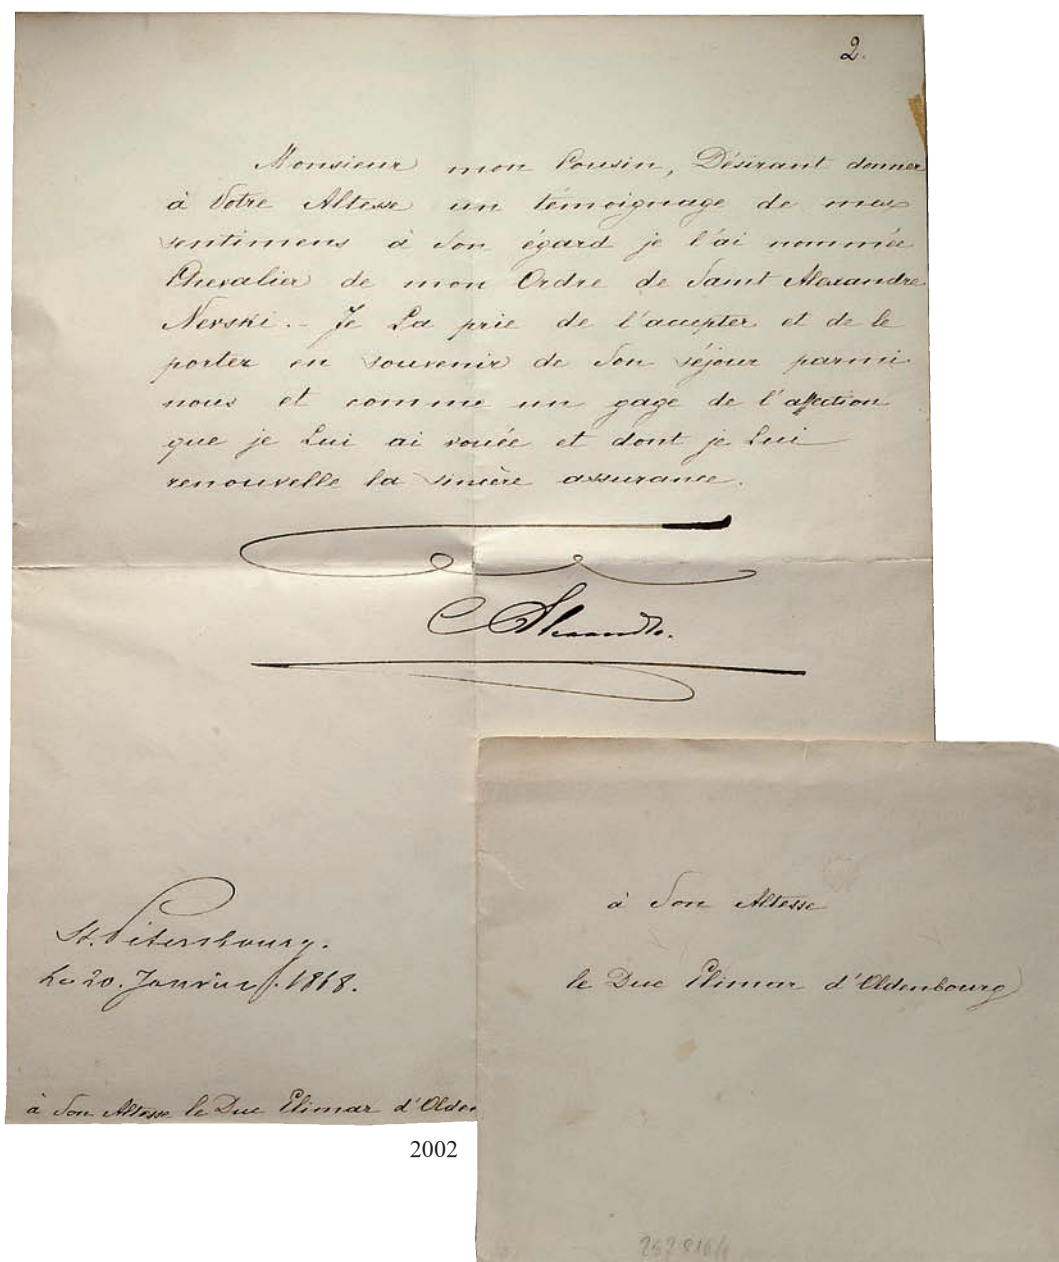 2.
Monsieur mon Cousin, Désirant donner
à Votre Altesse un témoignage de mes
sentimens à Son égard je l'ai nommée
Chevalier de mon Ordre de Saint Alexandre
Nevski. - Je La prie de l'accepter et de le
porter en souvenir de Son séjour parmi
nous et comme un gage de l'affection
que je Lui ai vouée et dont je Lui
renouvelle la sincère assurance.
Alexandre.
St. Pétersbourg.
Le 20. Janvier. 1868.
à Son Altesse le Duc Elimar d'Olden
2002
à Son Altesse
le Duc Elimar d'Oldenbourg